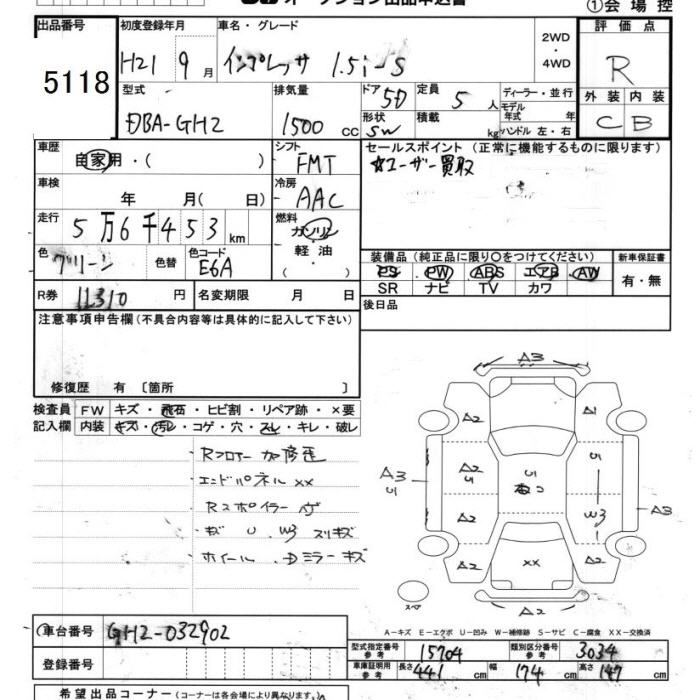 オークション出品申込書
①会場控
出品番号
5118
初度登録年月
H21 9月
車名・グレード
インプレッサ 1.5i-S
2WD
・
4WD
評価点
R
外装 内装
C B
型式
DBA-GH2
排気量
1500 cc
ドア 5D
定員 5 人
形状 SW
積載 kg
ディーラー・並行
モデル年式 年
ハンドル 左・右
車歴
自家用・( )
シフト
FMT
セールスポイント (正常に機能するものに限ります)
☆ユーザー買取
車検
年 月( 日)
冷房
AAC
走行
5万6千453 km
燃料
ガソリン
・
軽油
色
グリーン
色替
色コード
E6A
装備品 (純正品に限り○をつけてください)
PS PW ABS エアB AW
SR ナビ TV カワ
新車保証書
有・無
R券 11310 円
名変期限 月 日
後日品
注意事項申告欄 (不具合内容等は具体的に記入して下さい)
修復歴 有〔箇所 〕
検査員 FW キズ・飛石・ヒビ割・リペア跡・×要
記入欄 内装 キズ・汚レ・コゲ・穴・スレ・キレ・破レ
・Rフロアー 加修正
・エンドパネル xx
・Rスポイラー
・キズ U W3 スリキズ
・ホイール・Dミラーキズ
A3
A2
A1
A2
5
5
A3
5
W3
A3
A2
A2
A2
xx
A2
スペア
A2
A-キズ E-エクボ U-凹み W-補修跡 S-サビ C-腐食 XX-交換済
車台番号
GH2-032902
登録番号
型式指定番号 参考 15704
類別区分番号 参考 3034
車庫証明用 参考 長さ 441 cm 幅 174 cm 高さ 147 cm
希望出品コーナー (コーナーは各会場により異なります。)